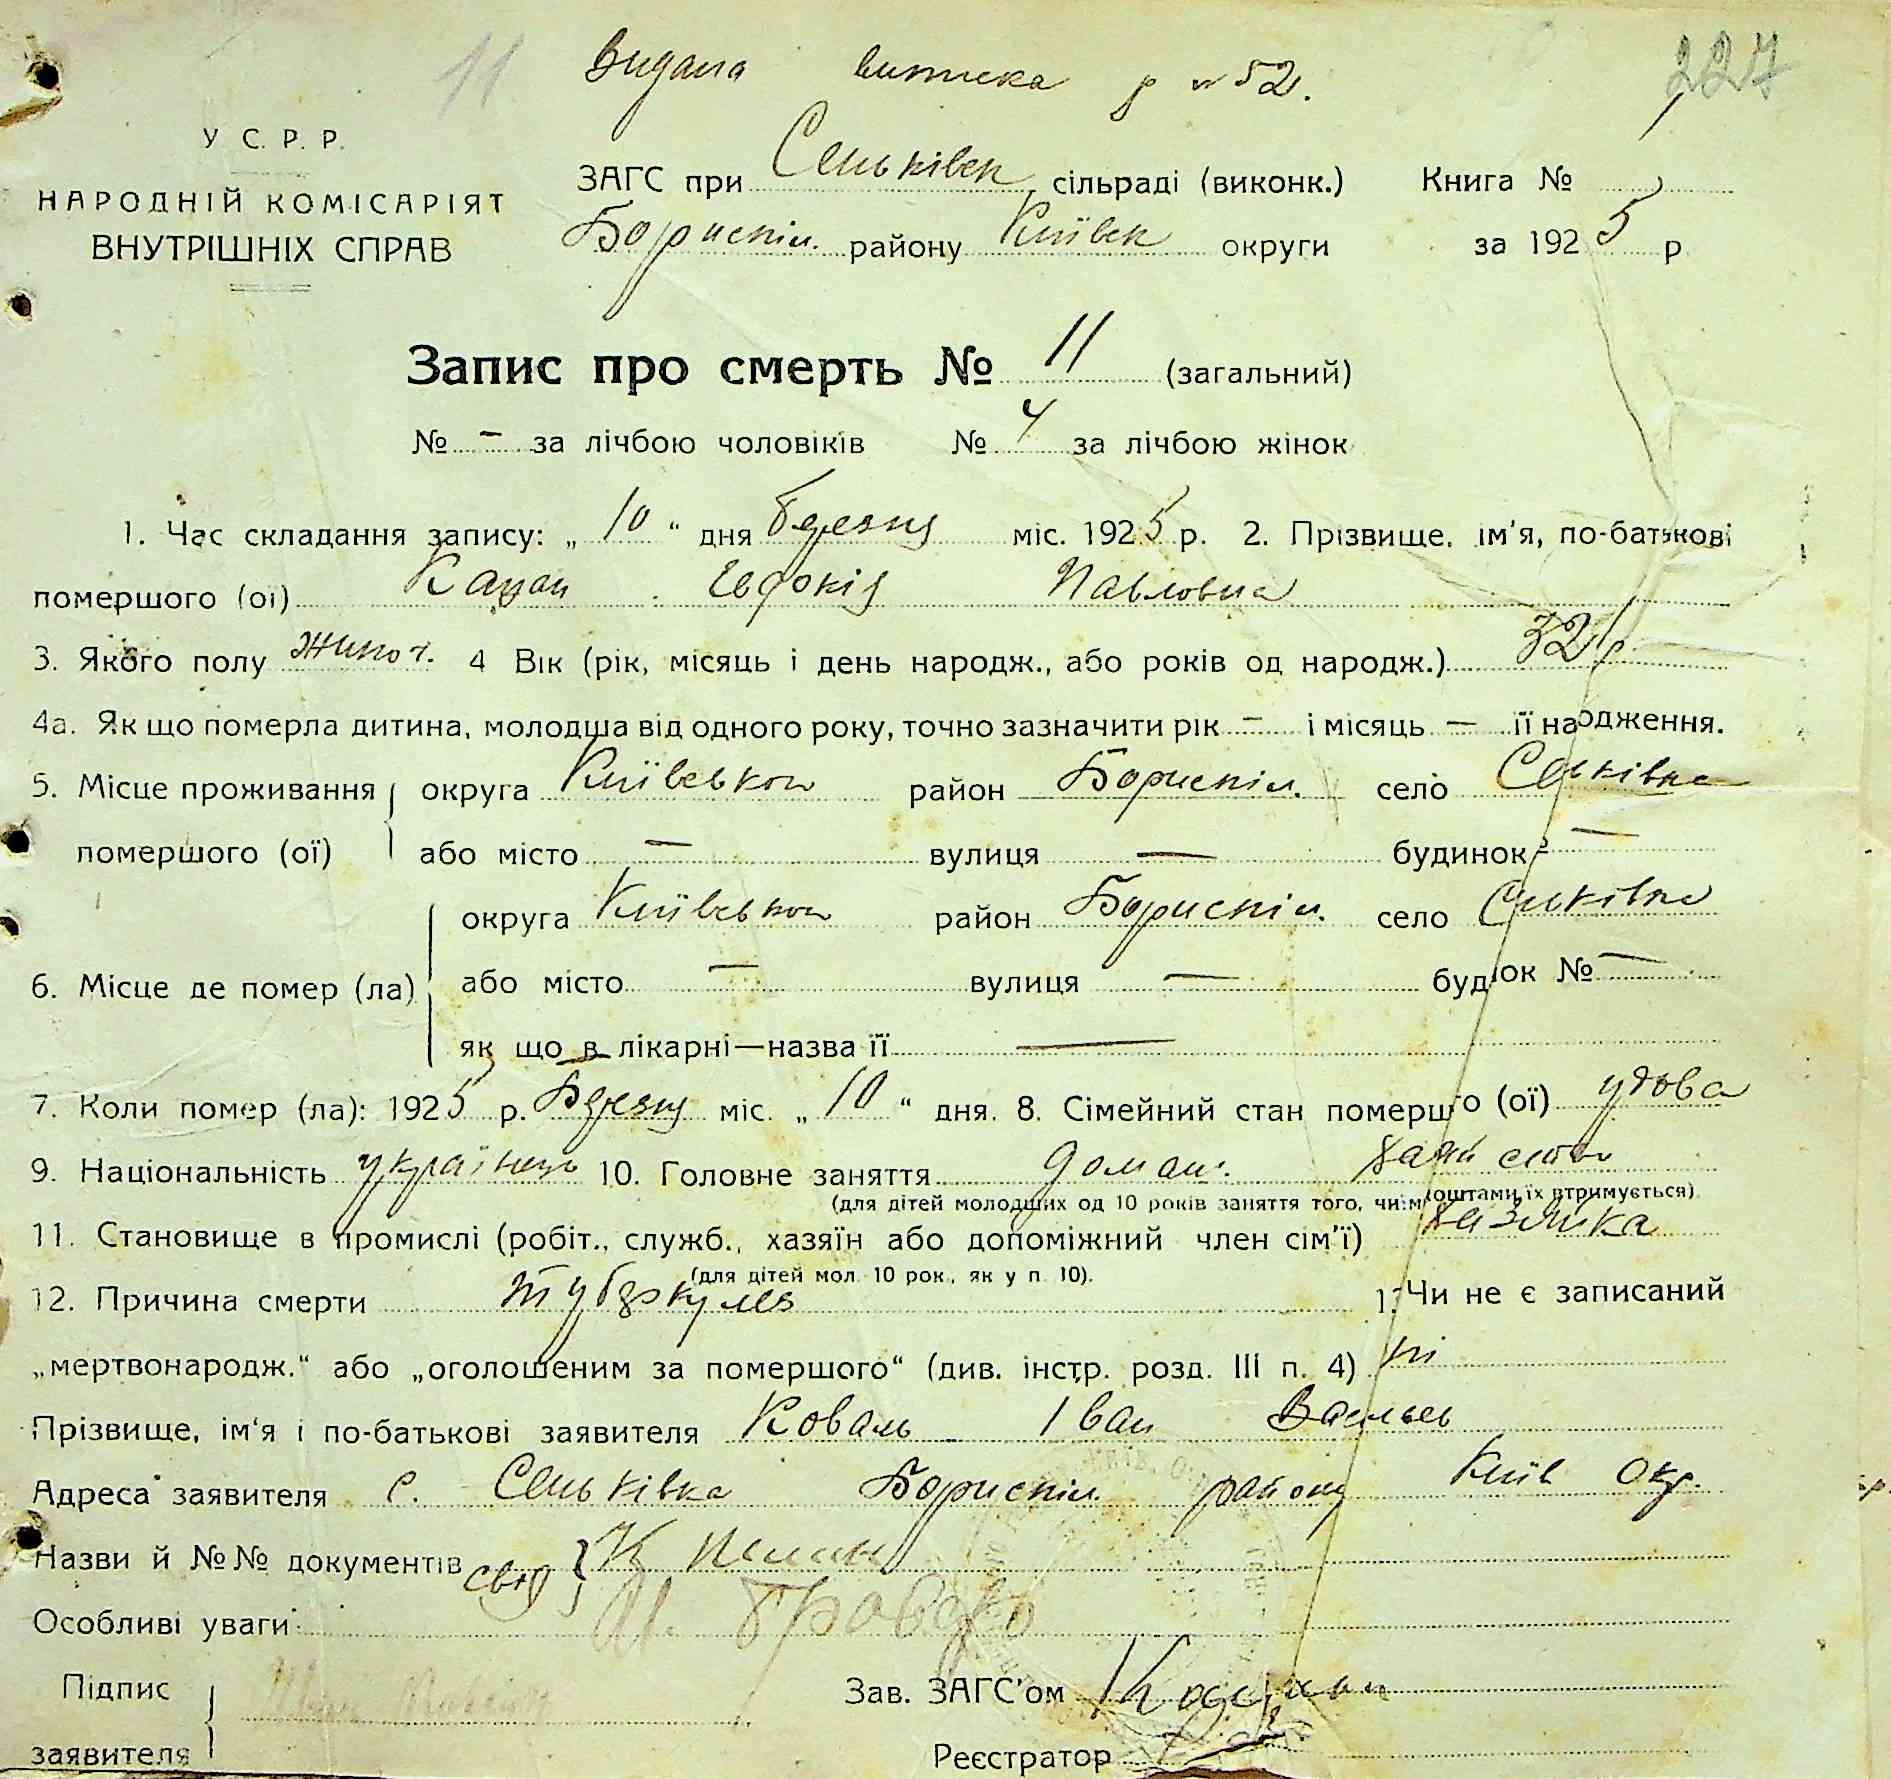 11 Видана виписка р № 52. 227
У С. Р. Р.
НАРОДНІЙ КОМІСАРІЯТ
ВНУТРІШНІХ СПРАВ
ЗАГС при Сеньківск сільраді (виконк.) Книга №
Бориспіл. району Київск округи за 1925 р
Запис про смерть № 11 (загальний)
№ — за лічбою чоловіків № 4 за лічбою жінок
1. Час складання запису: „ 10 “ дня березня міс. 1925 р. 2. Прізвище, ім'я, по-батькові
помершого (ої) Кацан Євдокія Павловна
3. Якого полу жіноч. 4 Вік (рік, місяць і день народж., або років од народж.) 32 р
4а. Як що померла дитина, молодша від одного року, точно зазначити рік — і місяць — її народження.
5. Місце проживання округа Київськои район Бориспіл. село Сеньківка
помершого (ої) або місто — вулиця — будинок —
округа Київськои район Бориспіл. село Сеньківка
6. Місце де помер (ла) або місто — вулиця — будок № —
як що в лікарні—назва її —
7. Коли помер (ла): 1925 р. Березня міс. „ 10 “ дня. 8. Сімейний стан помершго (ої) удова
9. Національність українець 10. Головне заняття домаш.
(для дітей молодших од 10 років заняття того, чиїм коштами їх втримується)
11. Становище в промислі (робіт., служб., хазяїн або допоміжний член сім'ї) хазяйка
(для дітей мол. 10 рок., як у п. 10).
12. Причина смерти туберкульоз 13 Чи не є записаний
„мертвонародж.“ або „оголошеним за помершого“ (див. інстр. розд. III п. 4) ні
Прізвище, ім'я і по-батькові заявителя Коваль Іван Васильев
Адреса заявителя с. Сеньківка Бориспіл. району Київ Окр.
Назви й №№ документів свід
Особливі уваги
Підпис Зав. ЗАГС'ом
заявителя Реєстратор